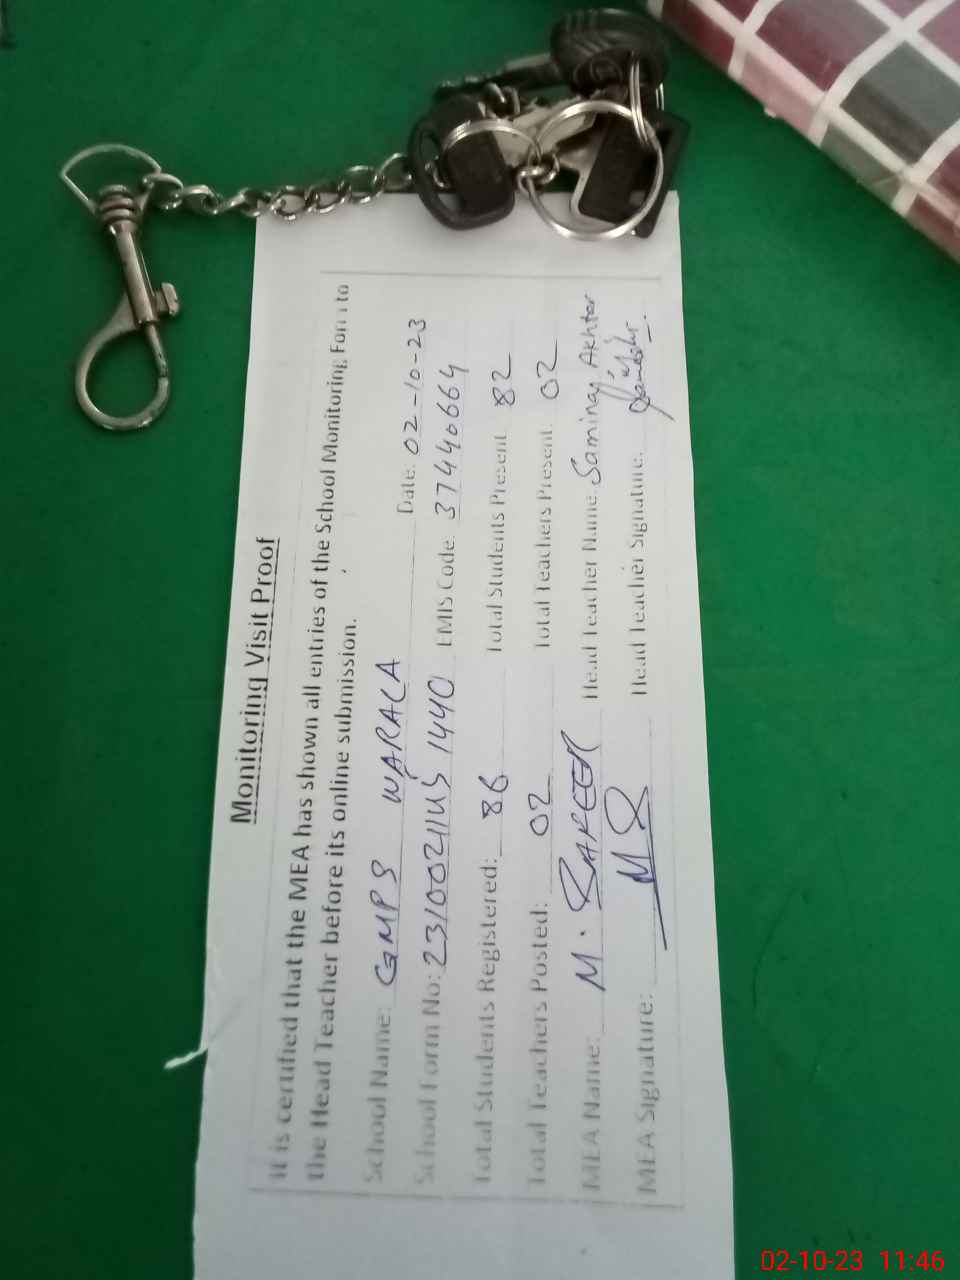 Monitoring Visit Proof
It is certified that the MEA has shown all entries of the School Monitoring Form to
the Head Teacher before its online submission.
School Name: GMPS WARALA Date: 02-10-23
School Form No: EMIS Code. 37440664
Total Students Registered: 86 Total Students Present 82
Total Teachers Posted: 02 Total Teachers Present. 02
MEA Name: M. Head Teacher Name: Samina Akhtar
MEA Signature: Head Teacher Signature.
02-10-23 11:46